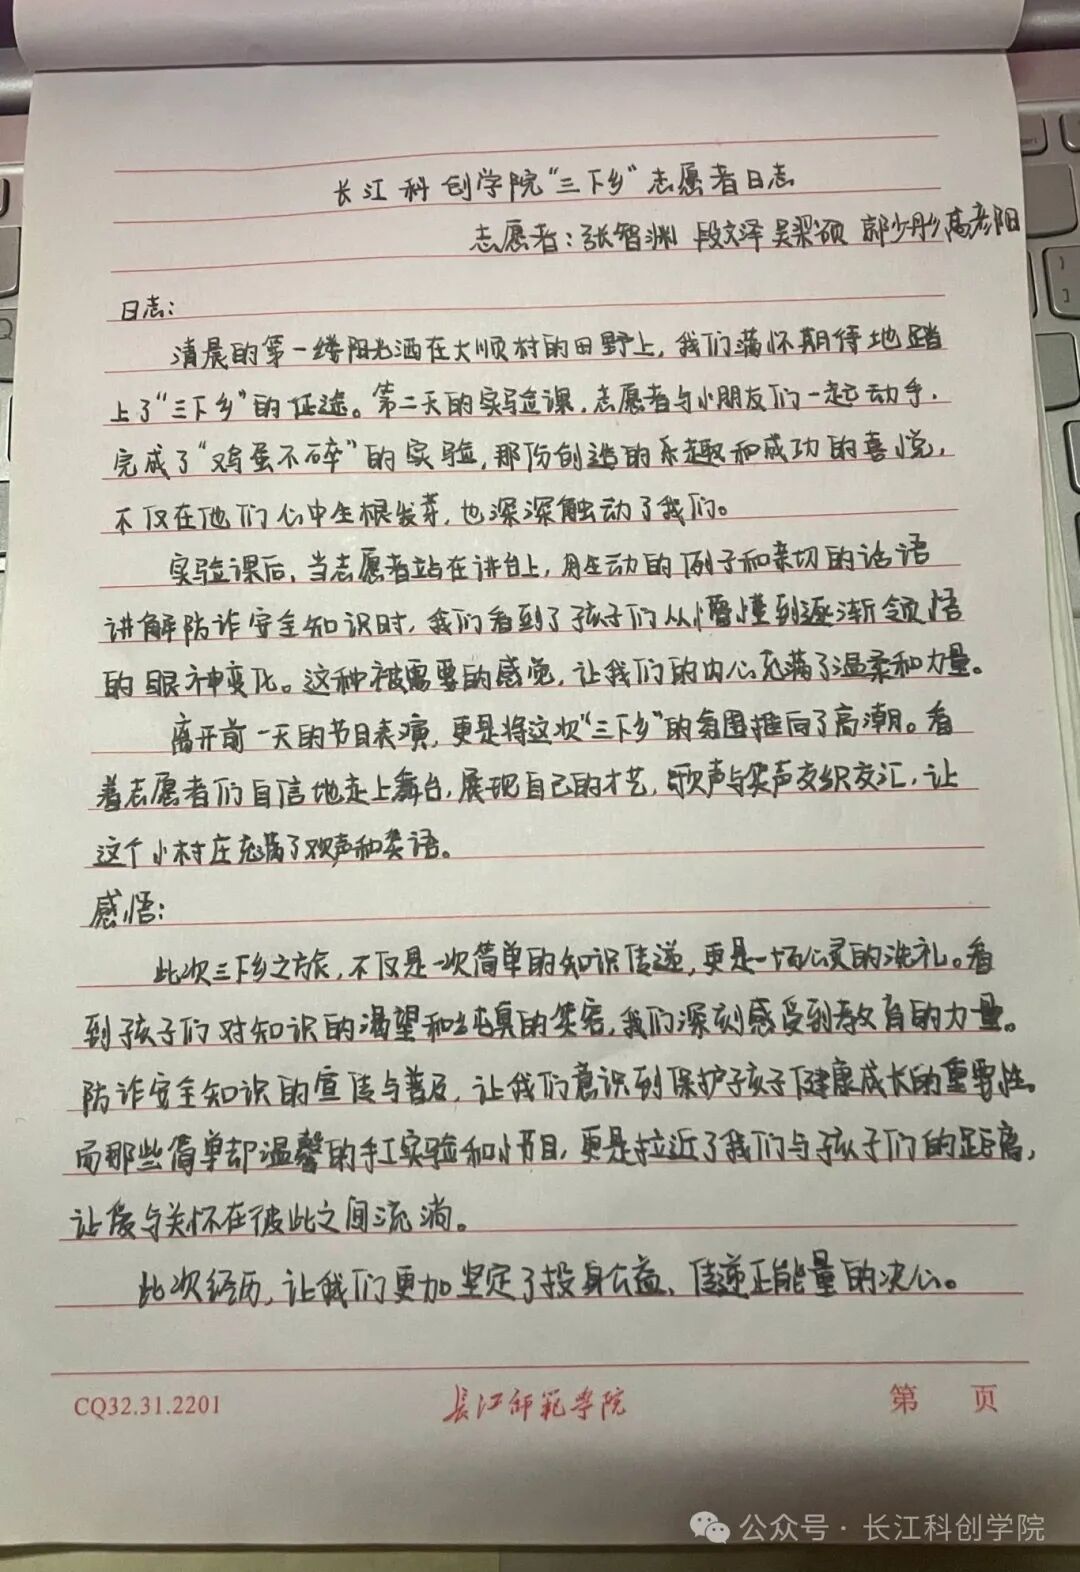 长江科创学院“三下乡”志愿者日志
志愿者：张智渊 段文泽 吴梁颂 郭少彤 高彦阳
日志：
清晨的第一缕阳光洒在大顺村的田野上，我们满怀期待地踏
上了“三下乡”的征途。第二天的实验课，志愿者与小朋友们一起动手，
完成了“鸡蛋不碎”的实验，那份创造的乐趣和成功的喜悦，
不仅在他们心中生根发芽，也深深触动了我们。
实验课后，当志愿者站在讲台上，用生动的例子和亲切的话语
讲解防诈安全知识时，我们看到了孩子们从懵懂到逐渐领悟
的眼神变化。这种被需要的感觉，让我们的内心充满了温柔和力量。
离开前一天的节目表演，更是将这次“三下乡”的氛围推向了高潮。看
着志愿者们自信地走上舞台，展现自己的才艺，歌声与笑声交织交汇，让
这个小村庄充满了欢声和笑语。
感悟：
此次三下乡之旅，不仅是一次简单的知识传递，更是一场心灵的洗礼。看
到孩子们对知识的渴望和纯真的笑容，我们深刻感受到教育的力量。
防诈安全知识的宣传与普及，让我们意识到保护孩子健康成长的重要性。
而那些简单却温馨的手工实验和小节目，更是拉近了我们与孩子们的距离，
让爱与关怀在彼此之间流淌。
此次经历，让我们更加坚定了投身公益、传递正能量的决心。
CQ32.31.2201 长江师范学院 第 页
公众号·长江科创学院